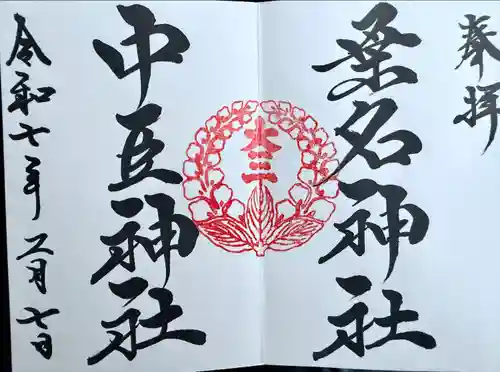 奉拝
桑名神社
大
三
中臣神社
令和七年二月七日